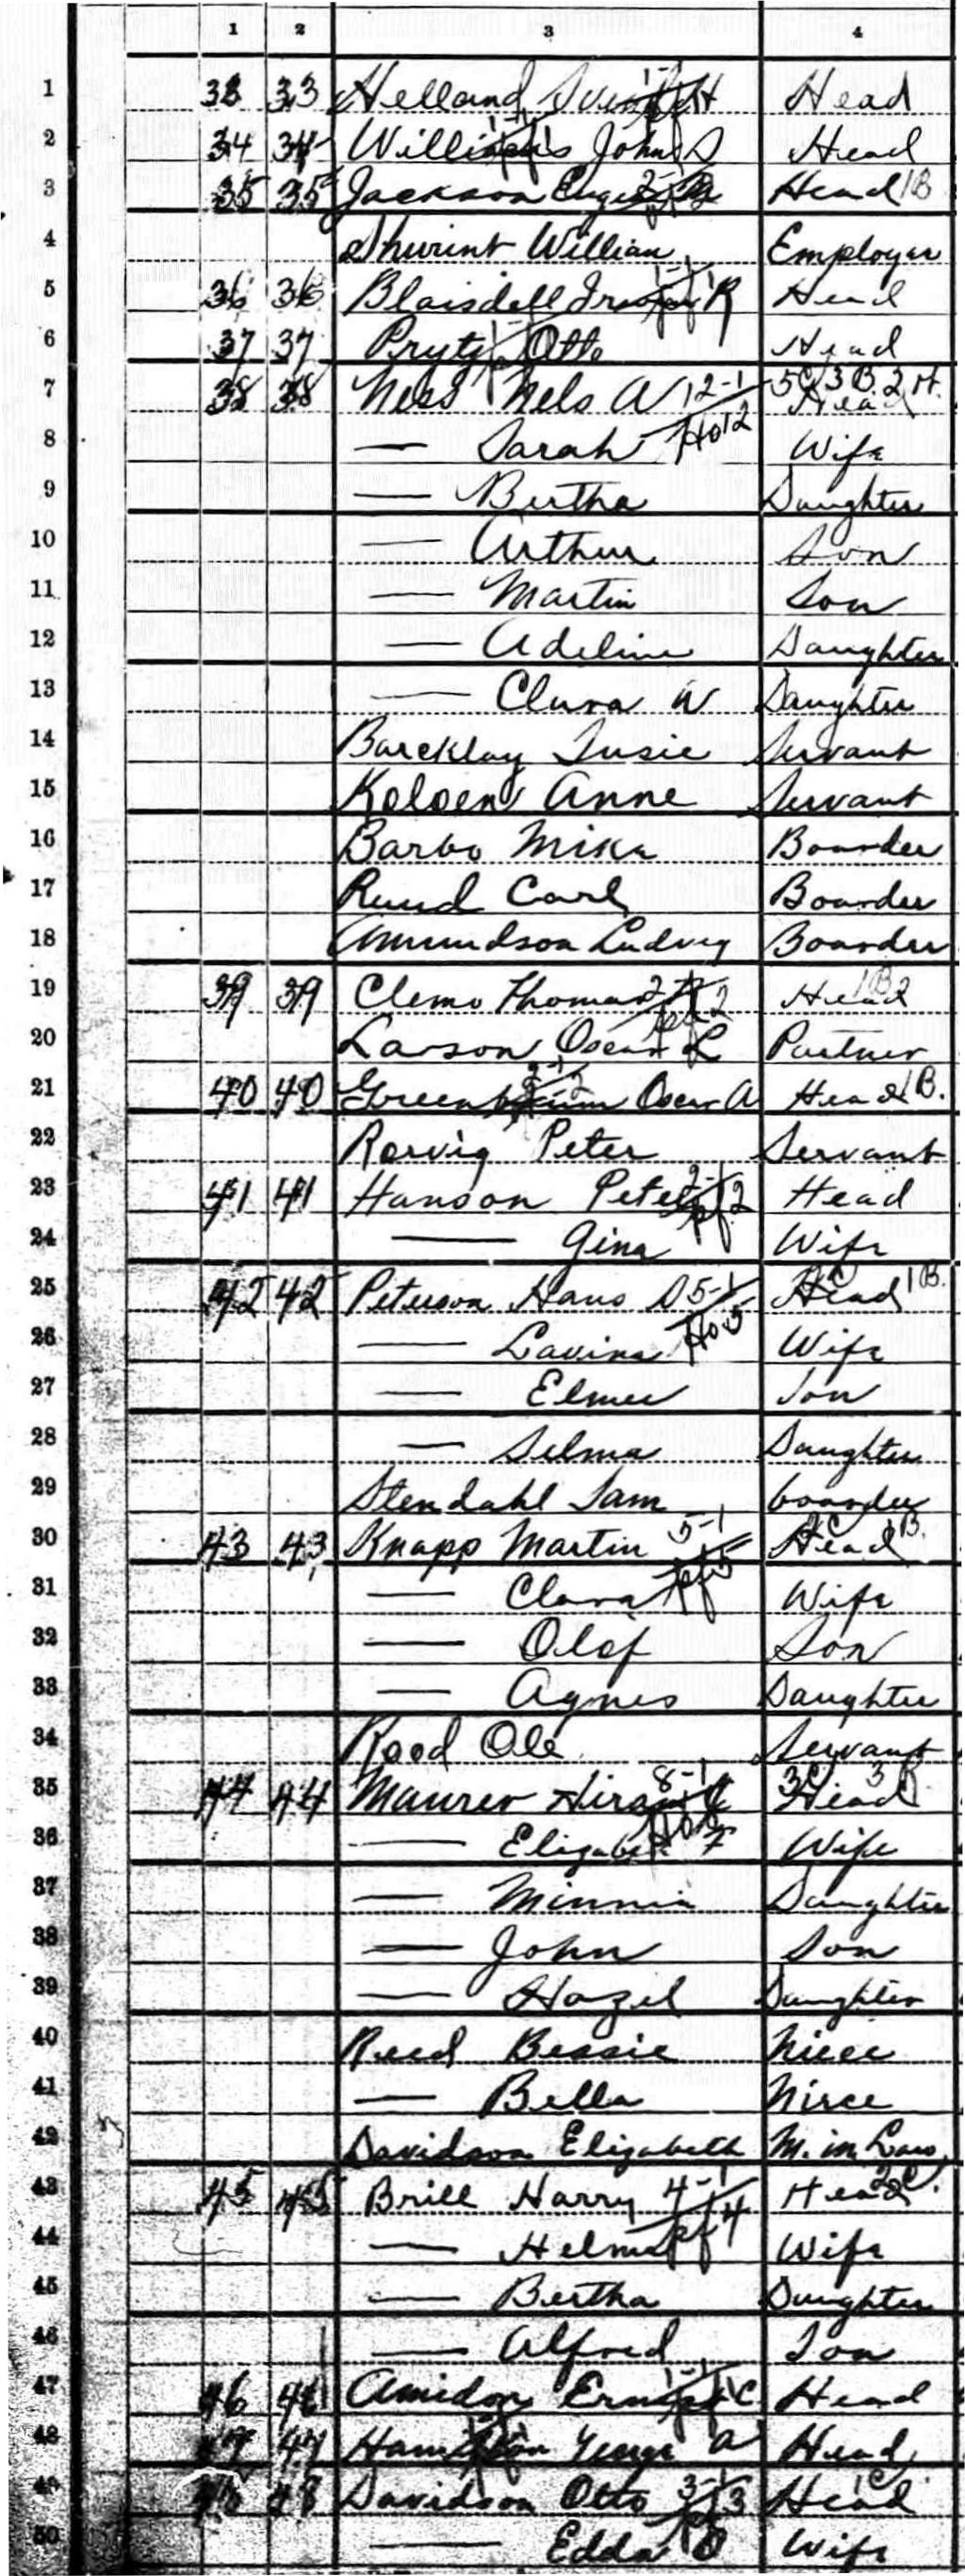 1 2 3 4
1 33 33 Helland H Head
2 34 34 Williams John S Head
3 35 35 Jackson Head 1B
4 William Employer
5 36 36 Blaisdell R Head
6 37 37 Otto Head
7 38 38 Ness Nels A 12-1 5C 3B. 2H. Head
8 — Sarah Ho12 Wife
9 — Bertha Daughter
10 — Arthur Son
11 — Martin Son
12 — Adeline Daughter
13 — Clara W Daughter
14 Barcklay Susie Servant
15 Koloen Anne Servant
16 Barbo Mike Boarder
17 Ruud Carl Boarder
18 Amundson Ludvig Boarder
19 39 39 Clemo Thomas 2 Head
20 Larson Oscar L Partner
21 40 40 Oscar A Head 1B.
22 Rorvig Peter Servant
23 41 41 Hanson Peter 2 Head
24 — Gina Wife
25 42 42 Peterson Hans 5-1 Head 1B.
26 — Lavina Ho5 Wife
27 — Elmer Son
28 — Selma Daughter
29 Stendahl Sam boarder
30 43 43 Knapp Martin 5-1 Head 1B.
31 — Clara Wife
32 — Olef Son
33 — Agnes Daughter
34 Rood Ole Servant
35 44 44 Maurer Hiram 8-1 Head
36 — Elizabeth F Wife
37 — Minnie Daughter
38 — John Son
39 — Hazel Daughter
40 Reed Bessie Niece
41 — Bella Niece
42 Davidson Elizabeth M. in Law
43 45 45 Brill Harry 4-1 Head 2C.
44 — Helma 4 Wife
45 — Bertha Daughter
46 — Alfred Son
47 46 46 Amidon Ernest C Head
48 47 47 George A Head
49 48 48 Davidson Otto 3-1 3 Head 1C
50 — Edda Wife